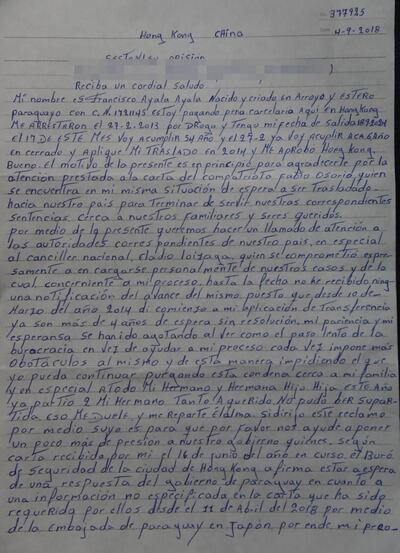 377925
Hong Kong China
4-9-2018
Reciba un cordial saludo.
Mi nombre es Francisco Ayala Ayala Nacido y criado en Arroyo y Estero
paraguayo con C.N. 1721145 estoy pagando pena carcelaria Aqui en Hong Kong
ME ARRESTARON el 27-2-2013 por DRoga y Tengo mi Fecha de Salida
el 17 DE ESTE MES voy Acumplir 54 Años y el 27-2 ya voy Acuplir
en cerrado y Aplique MI TRASLADO EN 2014 y ME AProbo Hong Kong.
Bueno. el motivo de la presente es en principio para agradecerte por la
atención prestada a la carta del compatriota Fabio Osorio, quien
se encuentra en mi misma situación de espera a ser Trasladado
hacia nuestro pais para Terminar de servir nuestras correspondientes
sentencias. cerca a nuestros familiares y seres queridos.
por medio de la presente queremos hacer un llamado de atención a
las autoridades correspondientes de nuestro pais, en especial
al canciller nacional, Eladio Loizaga, quien se comprometió expre-
samente a en cargarse personalmente de nuestros casos y de lo
cual concerniente a mi proceso, hasta la fecha no he recibido nin-
guna notificación del avance del mismo, puesto que desde 10 de
Marzo del año 2014 di comienzo a mi aplicación de Transferencia
ya son más de 4 años de espera sin resolución, mi paciencia y mi
esperansa se han ido agotando al ver como el paso lento de la
burocracia en vez de ayudar a mi proceso cada vez impone más
obstáculos al mismo y de esta manera impidiendo el que
yo pueda continuar purgando esta condena cerca a mi familia
y en especial A todo Mi Hermano y Hermana Hijo Hija Este Año
ya partio 2 Mi Hermano Tanto A querido. No pudo ber supar-
Tida. eso ME Duele, y me Reparte el alma. Si dirijo este reclamo
por medio suyo es para que por favor nos ayude a poner
un poco más de presion a nuestro gobierno quienes, según
carta recibida por mi el 16 de junio del año en curso, el Buró
de Seguridad de la ciudad de Hong Kong a firma estar a espera
de una respuesta del gobierno de paraguay en cuanto a
una información no especificada en la carta que ha sido
requerida por ellos desde el 11 de Abril del 2018 por medio
de la Embajada de paraguay en Japón. por ende mi proce-